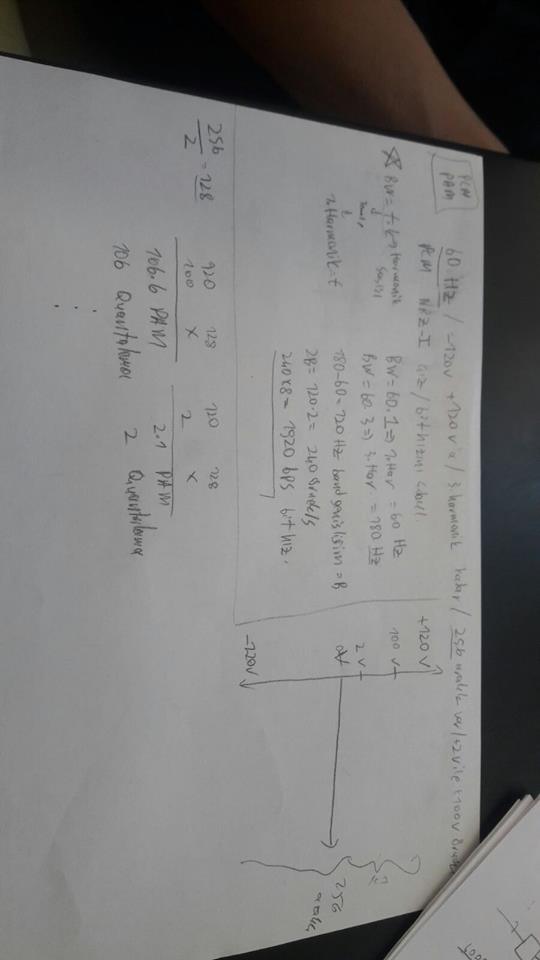 PCM
PAM
60 Hz / -120V +120V'a / 3. harmonik kadar / 256 aralık var / +2V ile +100V örnek
PCM NRZ-I çiz / bit hızını
BW = f. k → Harmonik Sayısı
1. Harmonik = f
BW = 60.1 ⇒ 1. Har = 60 Hz
BW = 60.3 ⇒ 3. Har. = 180 Hz
180-60 = 120 Hz band genişliğim = B
2B = 120.2 = 240 örnek/s
240x8 = 1920 bps bit hız.
+120 V
100 V
2 V
0V
-120V
256
aralık
256/2 = 128
120 128
100 X
106.6 PAM
106 Quantalama
120 128
2 X
2.1 PAM
2 Quantalama